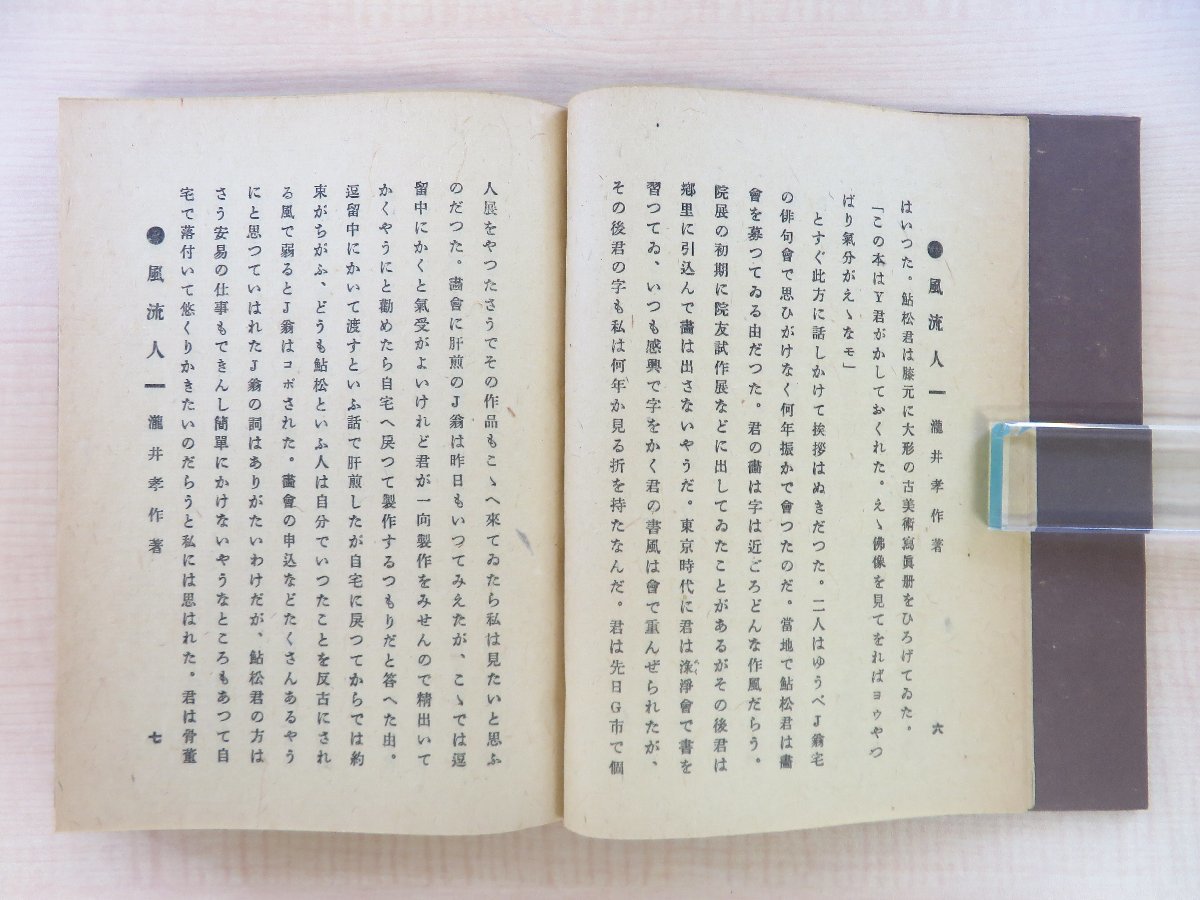 ●風流人━瀧井孝作著
六
はいつた。鮎松君は膝元に大形の古美術寫眞册をひろげてゐた。
「この本はY君がかしておくれた。えゝ佛像を見てをればヨウやつ
ぱり氣分がえゝなモ」
とすぐ此方に話しかけて挨拶はぬきだつた。二人はゆうべJ翁宅
の俳句會で思ひがけなく何年振かで會つたのだ。當地で鮎松君は畵
會を募つてゐる由だつた。君の畵は字は近ごろどんな作風だらう。
院展の初期に院友試作展などに出してゐたことがあるがその後君は
鄉里に引込んで畵は出さないやうだ。東京時代に君は淨會で書を
習つてゐ、いつも感興で字をかく君の書風は會で重んぜられたが、
その後君の字も私は何年か見る折を持たなんだ。君は先日G市で個
人展をやつたさうでその作品もこゝへ來てゐたら私は見たいと思ふ
のだつた。畵會に肝煎のJ翁は昨日もいつてみえたが、こゝでは逗
留中にかくと氣受がよいけれど君が一向製作をみせんので精出いて
かくやうにと勸めたら自宅へ戾つて製作するつもりだと答へた由。
逗留中にかいて渡すといふ話で肝煎したが自宅に戾つてからでは約
束がちがふ、どうも鮎松といふ人は自分でいつたことを反古にされ
る風で弱るとJ翁はコボされた。畵會の申込などたくさんあるやう
にと思つていはれたJ翁の詞はありがたいわけだが、鮎松君の方は
さう安易の仕事もできんし簡單にかけないやうなところもあつて自
宅で落付いて悠くりかきたいのだらうと私には思はれた。君は骨董
●風流人━瀧井孝作著
七